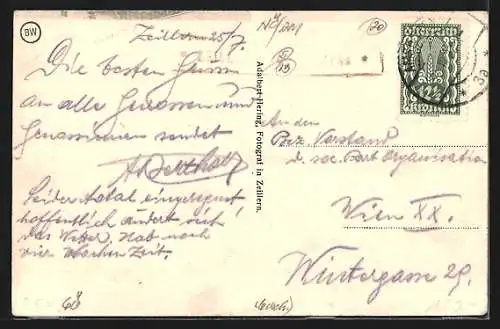 BW
Zeillern 25/7.
Die besten Grüsse
an alle Genossen und
Genossinnen sendet
A Berthold
Leider total eingeregnet,
hoffentlich ändert sich
das Wetter. Hab noch
vier Wochen Zeit.
68
20
5
15
Adalbert Hering, Fotograf in Zeillern.
12½
3a
An den
Bez. Vorstand
d. soc. Part Organisation
Wien XX.
Wintergasse 29.